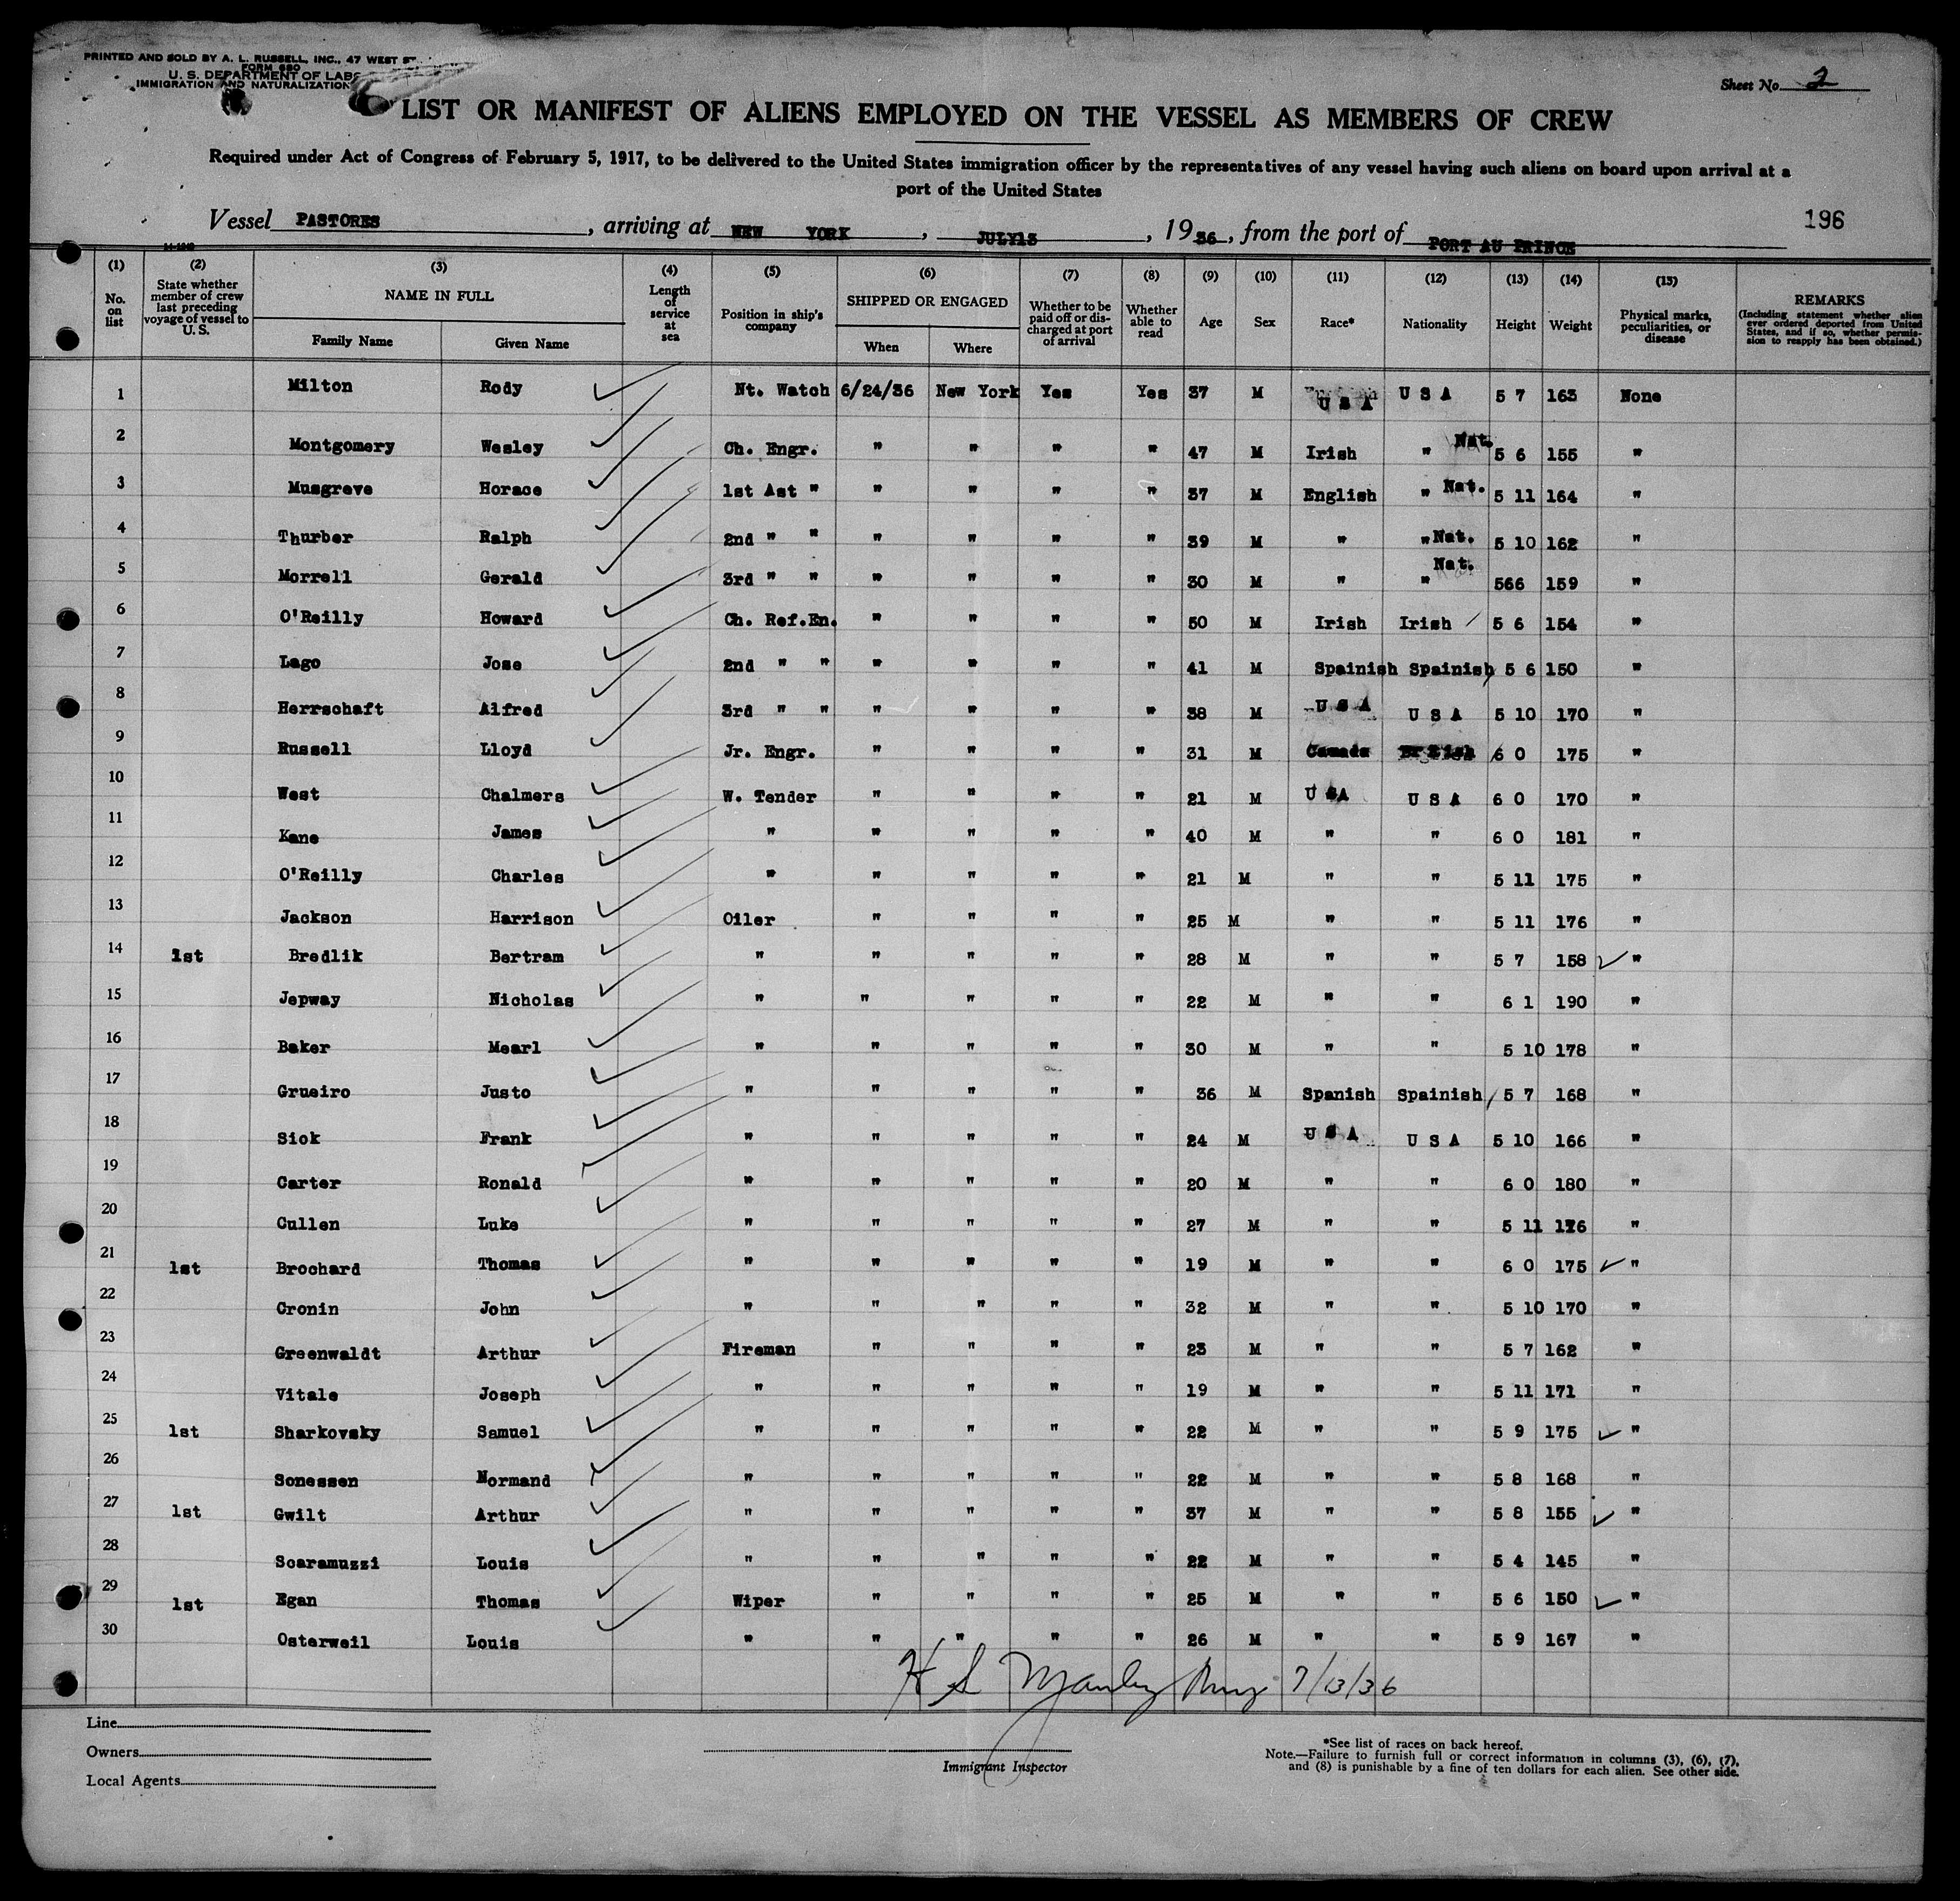 PRINTED AND SOLD BY A. L. RUSSELL, INC., 47 WEST ST.
FORM 680
U. S. DEPARTMENT OF LAB
IMMIGRATION AND NATURALIZATION
Sheet No. 2
LIST OR MANIFEST OF ALIENS EMPLOYED ON THE VESSEL AS MEMBERS OF CREW
Required under Act of Congress of February 5, 1917, to be delivered to the United States immigration officer by the representatives of any vessel having such aliens on board upon arrival at a
port of the United States
Vessel PASTORES, arriving at NEW YORK, JULY13, 1936, from the port of PORT AU PRINCE
196
(1) No. on list
(2) State whether member of crew last preceding voyage of vessel to U. S.
(3) NAME IN FULL Family Name Given Name
(4) Length of service at sea
(5) Position in ship's company
(6) SHIPPED OR ENGAGED When Where
(7) Whether to be paid off or discharged at port of arrival
(8) Whether able to read
(9) Age
(10) Sex
(11) Race*
(12) Nationality
(13) Height
(14) Weight
(15) Physical marks, peculiarities, or disease
REMARKS (Including statement whether alien ever ordered deported from United States, and if so, whether permission to reapply has been obtained.)
1 Milton Rody Nt. Watch 6/24/36 New York Yes Yes 37 M U S A U S A 5 7 163 None
2 Montgomery Wesley Ch. Engr. " " " " 47 M Irish " Nat. 5 6 155 "
3 Musgreve Horace 1st Ast " " " " " 37 M English " Nat. 5 11 164 "
4 Thurber Ralph 2nd " " " " " " 39 M " " Nat. 5 10 162 "
5 Morrell Gerald 3rd " " " " " " 30 M " " Nat. 566 159 "
6 O'Reilly Howard Ch. Ref.En. " " " " 50 M Irish Irish 5 6 154 "
7 Lago Jose 2nd " " " " " " 41 M Spainish Spainish 5 6 150 "
8 Herrschaft Alfred 3rd " " " " " " 38 M U S A U S A 5 10 170 "
9 Russell Lloyd Jr. Engr. " " " " 31 M Canada British 6 0 175 "
10 West Chalmers W. Tender " " " " 21 M U S A U S A 6 0 170 "
11 Kane James " " " " " 40 M " " 6 0 181 "
12 O'Reilly Charles " " " " " 21 M " " 5 11 175 "
13 Jackson Harrison Oiler " " " " 25 M " " 5 11 176 "
14 1st Bredlik Bertram " " " " " 28 M " " 5 7 158 "
15 Jepway Nicholas " " " " " 22 M " " 6 1 190 "
16 Baker Mearl " " " " " 30 M " " 5 10 178 "
17 Grueiro Justo " " " " " 36 M Spanish Spainish 5 7 168 "
18 Sick Frank " " " " " 24 M U S A U S A 5 10 166 "
19 Carter Ronald " " " " " 20 M " " 6 0 180 "
20 Cullen Luke " " " " " 27 M " " 5 11 176 "
21 1st Brochard Thomas " " " " " 19 M " " 6 0 175 "
22 Cronin John " " " " " 32 M " " 5 10 170 "
23 Greenwaldt Arthur Fireman " " " " 23 M " " 5 7 162 "
24 Vitale Joseph " " " " " 19 M " " 5 11 171 "
25 1st Sharkovsky Samuel " " " " " 22 M " " 5 9 175 "
26 Sonessen Normand " " " " " 22 M " " 5 8 168 "
27 1st Gwilt Arthur " " " " " 37 M " " 5 8 155 "
28 Scaramuzzi Louis " " " " " 22 M " " 5 4 145 "
29 1st Egan Thomas Wiper " " " " 25 M " " 5 6 150 "
30 Osterweil Louis " " " " " 26 M " " 5 9 167 "
H S Manley 7/13/36
Line
Owners
Local Agents
Immigrant Inspector
*See list of races on back hereof.
Note.—Failure to furnish full or correct information in columns (3), (6), (7),
and (8) is punishable by a fine of ten dollars for each alien. See other side.